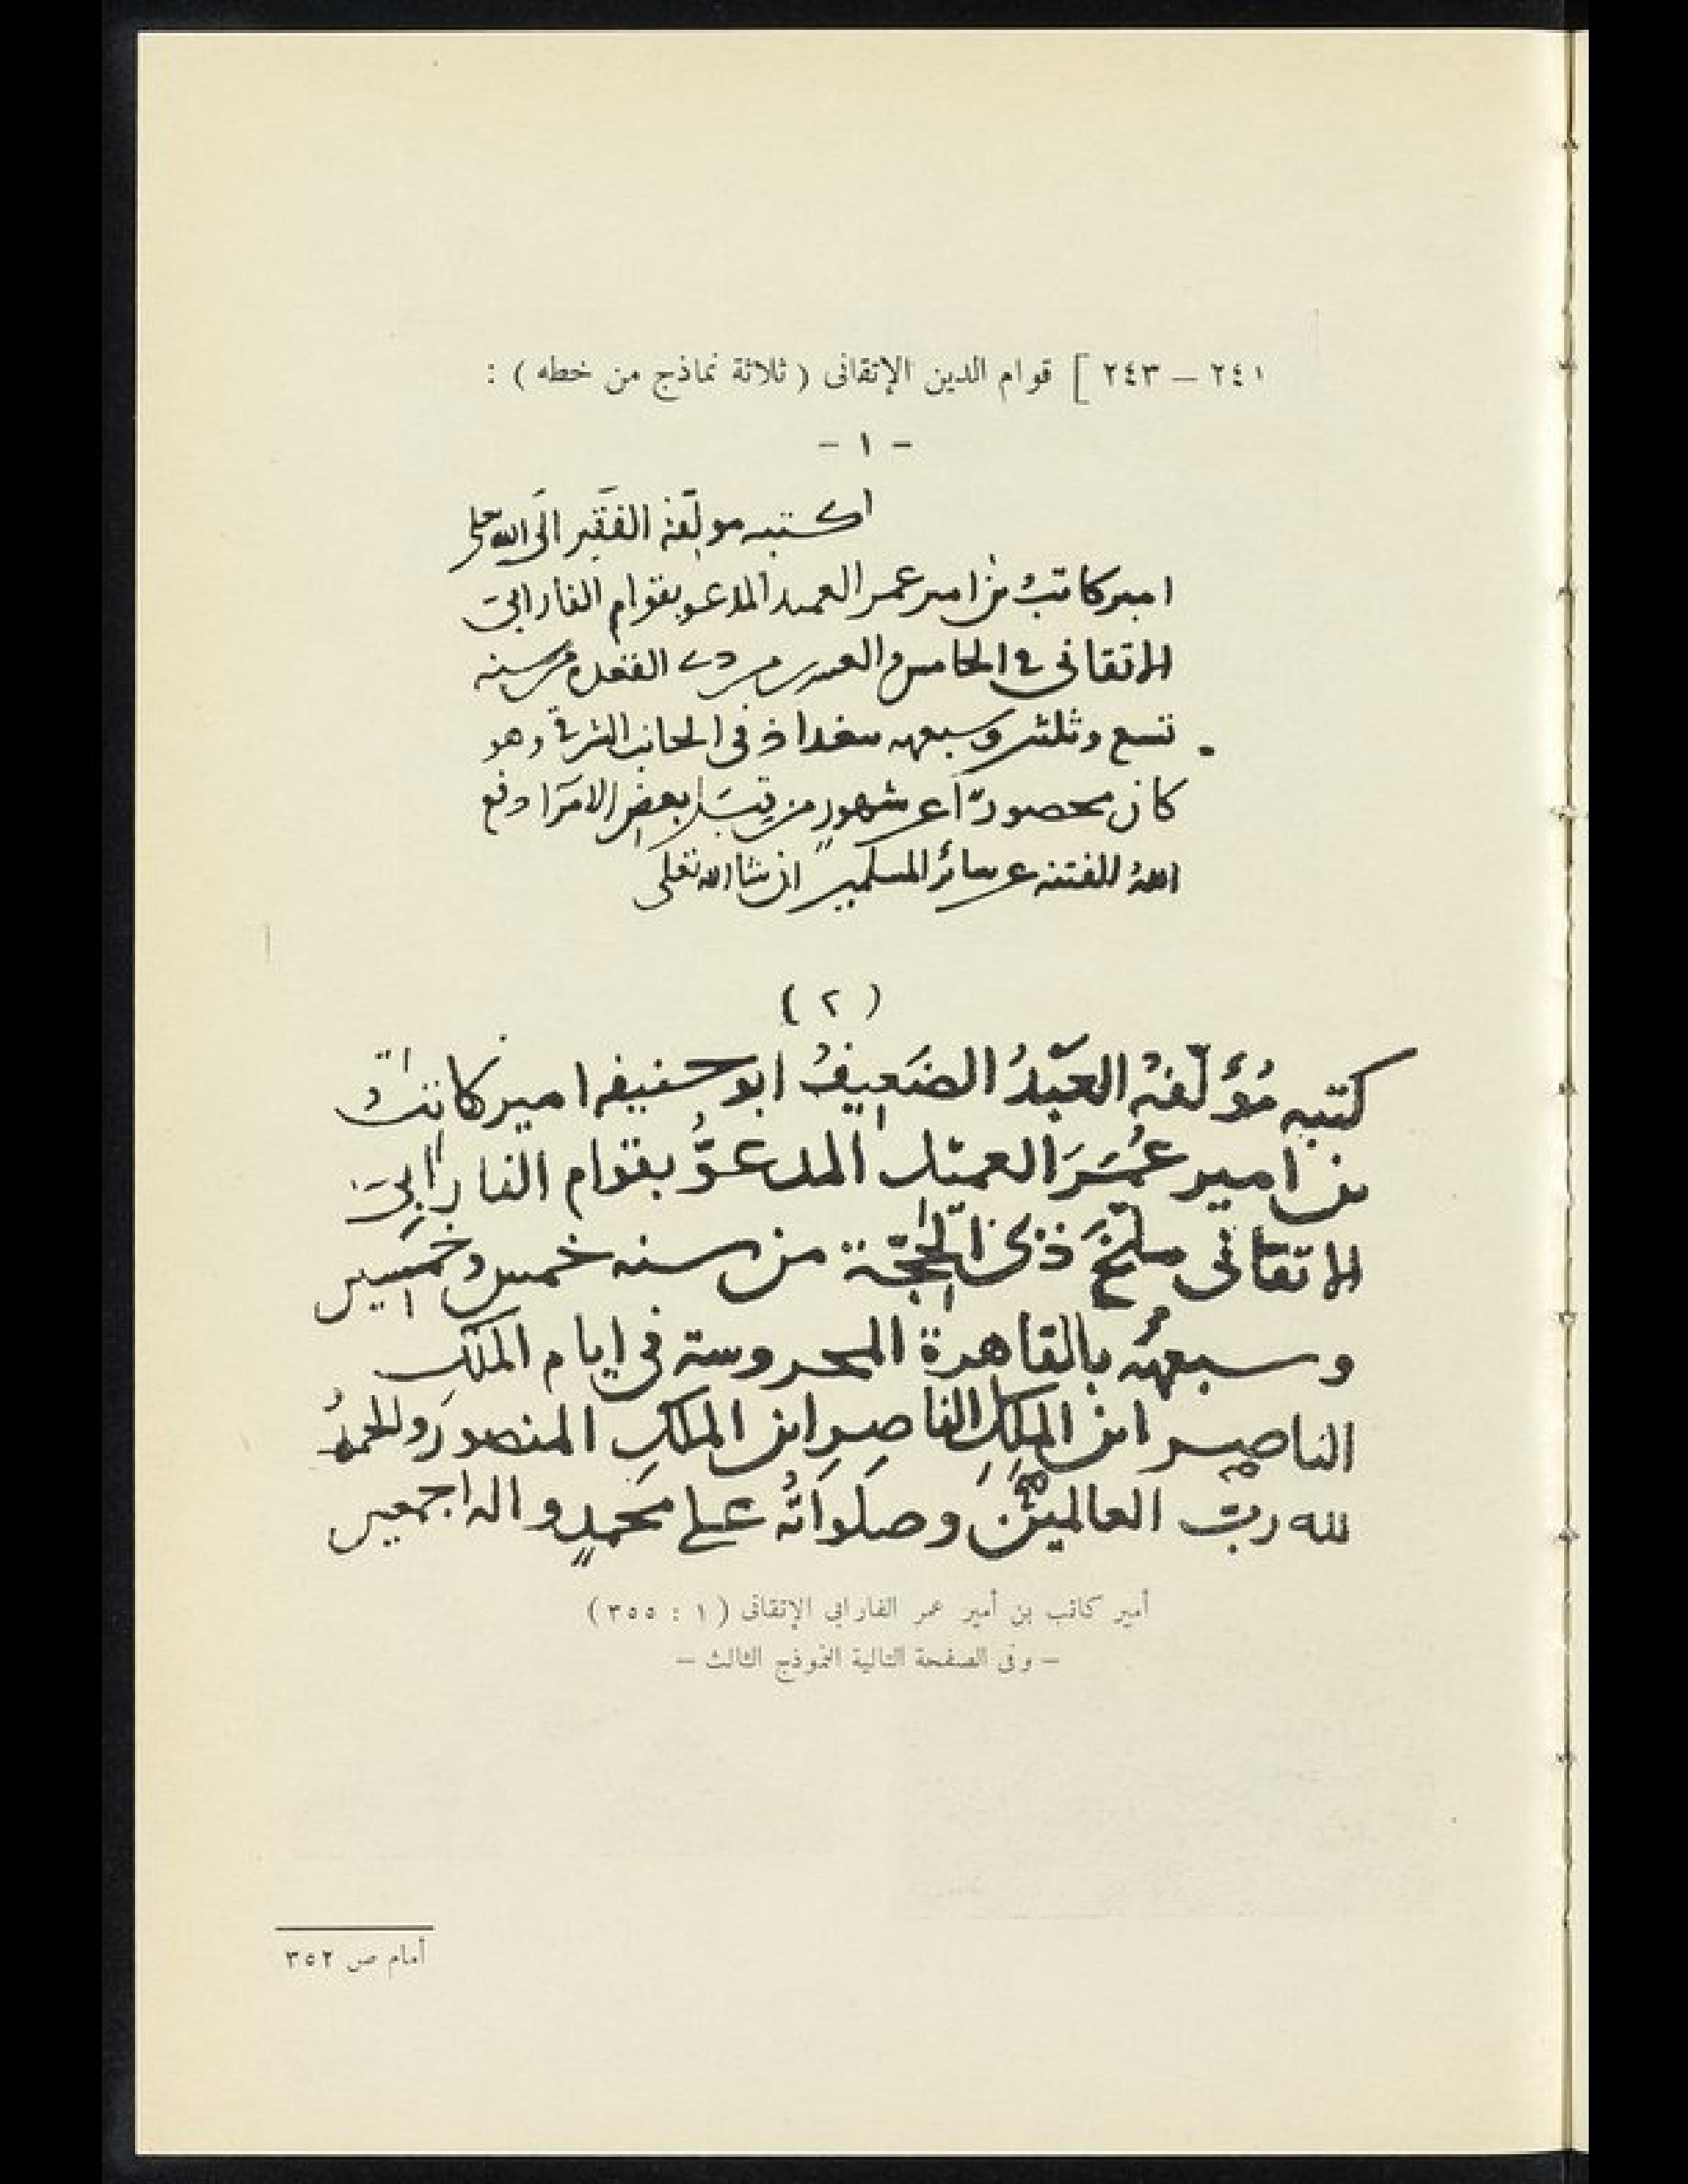 ٢٤١ – ٢٤٣ ] قوام الدين الإتقانى ( ثلاثة نماذج من خطه ) :
– ١ –
اكتبه مولّفهُ الفَقير الَى الله تعلى
امير كاتبُ بن امير عمر العميد المدعو بقوام الفارابىَ
الاتقانى فى الخامس والعشرين من ذى القعده من سنه
تسع وثلثين وسبعمه ببغداذ فى الجانب الشرقى وهو
كان محصورًا عن شهورٍ من قِبَلِ بعضِ الامَرا دفع
اللهُ الفتنه عن سائر المسلمين ان شا الله تعلى
( ٢ )
كتبه مُؤلّفهُ العَبْدُ الضَعِيفُ ابو حنيفه امير كاتبُ
بن امير عُمَرَ العميد المدعوُّ بقوام الفارابِىَ
الاتقانى سلْخَ ذى الحِجّة من سنه خمس وخمسين
وسبعمه بالقاهرة المحروسة فى ايام الملكِ
الناصِر ابن الملِكِ الناصِر ابن الملكِ المنصورِ والحمدُ
لله ربّ العالمينَ وصلَواتُه على محمدٍ واله اجمعين
أمير كاتب بن أمير عمر الفارابي الإتقانى ( ١ : ٣٥٥ )
– وفى الصفحة التالية النموذج الثالث –
أمام ص ٣٥٢